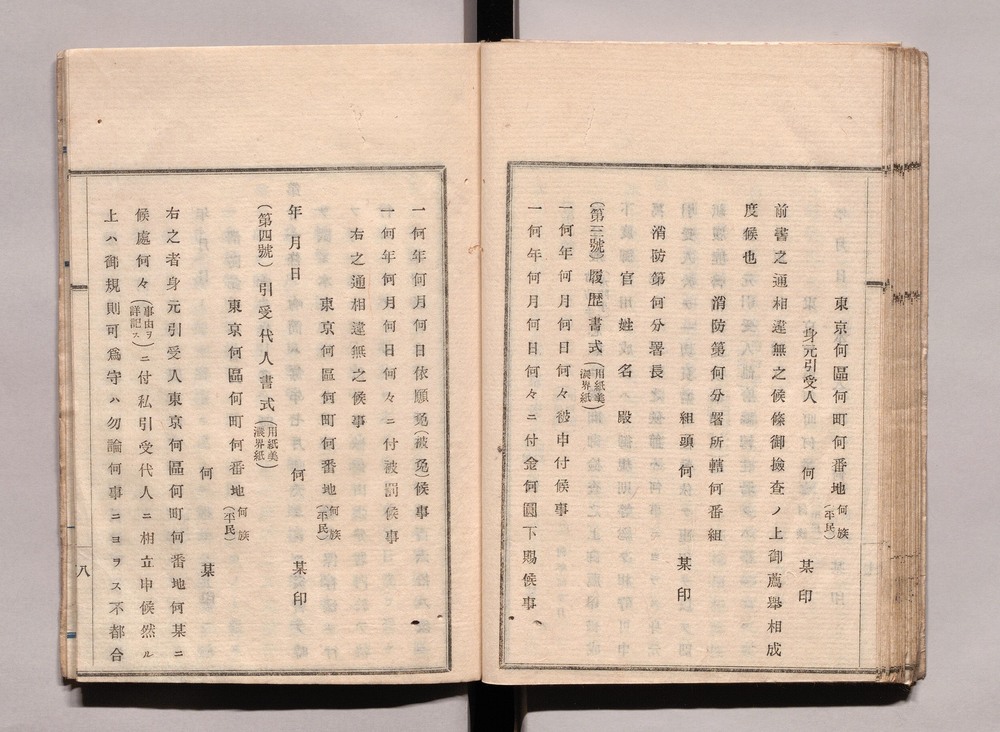 東京何區何町何番地何族(平民)
身元引受人 何 某 印
前書之通相違無之候條御撿査ノ上御薦擧相成
度候也
消防第何分署所轄何番組
組頭 何 某 印
消防第何分署長
官 姓 名 殿
(第三號)履歴書式(用紙美濃界紙)
一何年何月何日何々被申付候事
一何年何月何日何々ニ付金何圓下賜候事
一何年何月何日依願免(被免)候事
一何年何月何日何々ニ付被罰候事
右之通相違無之候事
東京何區何町何番地何族(平民)
年 月 日 何 某 印
(第四號)引受代人書式(用紙美濃界紙)
東京何區何町何番地何族(平民)
何 某
右之者身元引受人東京何區何町何番地何某ニ
候處何々(事由ヲ詳記ス)ニ付私引受代人ニ相立申候然ル
上ハ御規則可爲守ハ勿論何事ニヨラス不都合
八